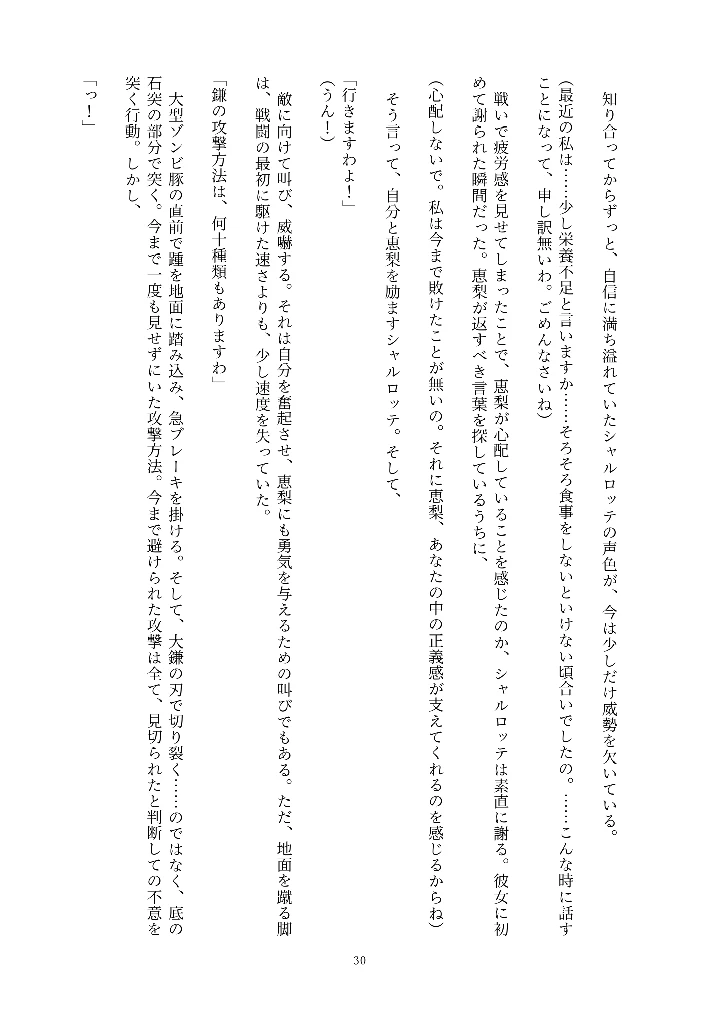 知り合ってからずっと、自信に満ち溢れていたシャルロッテの声色が、今は少しだけ威勢を欠いている。
(最近の私は……少し栄養不足と言いますか……そろそろ食事をしないといけない頃合いでしたの。……こんな時に話す
ことになって、申し訳無いわ。ごめんなさいね)
戦いで疲労感を見せてしまったことで、恵梨が心配していることを感じたのか、シャルロッテは素直に謝る。彼女に初
めて謝られた瞬間だった。恵梨が返すべき言葉を探しているうちに、
(心配しないで。私は今まで敗けたことが無いの。それに恵梨、あなたの中の正義感が支えてくれるのを感じるからね)
そう言って、自分と恵梨を励ますシャルロッテ。そして、
「行きますわよ!」
(うん!)
敵に向けて叫び、威嚇する。それは自分を奮起させ、恵梨にも勇気を与えるための叫びでもある。ただ、地面を蹴る脚
は、戦闘の最初に駆けた速さよりも、少し速度を失っていた。
「鎌の攻撃方法は、何十種類もありますわ」
大型ゾンビ豚の直前で踵を地面に踏み込み、急ブレーキを掛ける。そして、大鎌の刃で切り裂く……のではなく、底の
石突の部分で突く。今まで一度も見せずにいた攻撃方法。今まで避けられた攻撃は全て、見切られたと判断しての不意を
突く行動。しかし、
「っ!」
30